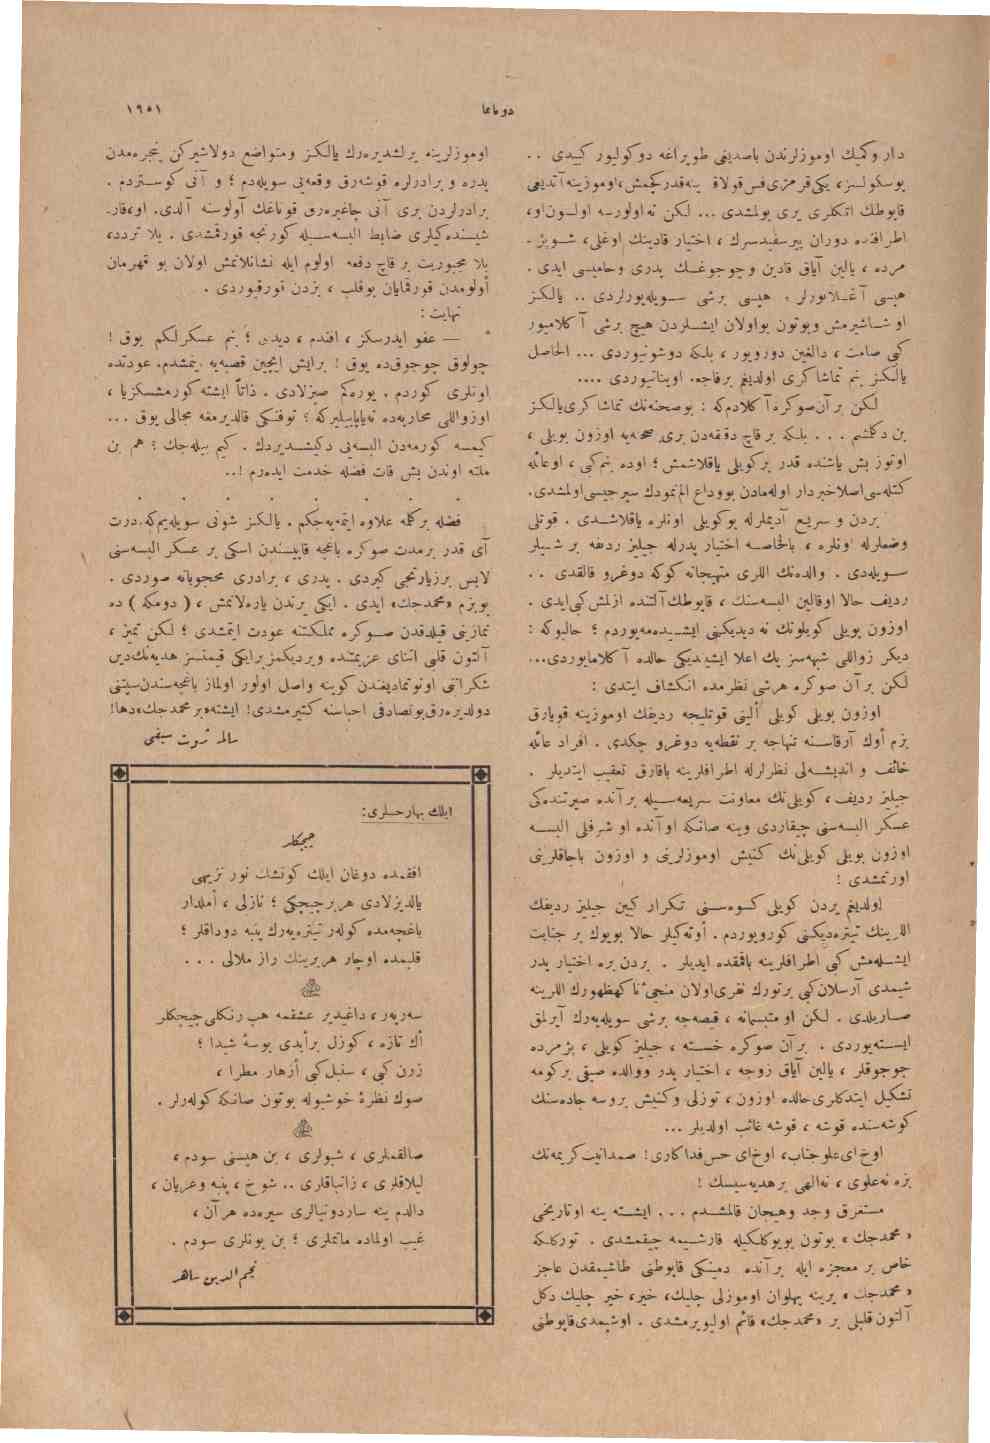 دوناما
١٩٥١
دار وكميك اوموزلرندن باصديغى طوپراغه دوكولیور كبیدی . .
پوسكولسز، یكى قرمزی فس قولاقلرینه قدر كچمش، اوموزینه آتدیغى
قابوطك اتكلری یری بولمشدی ... لكن نه اولورسه اولسون او،
اطرافنده دوران پیر سفیدسرك ، اختیار قادینك اوغلى، شو بژ ـ
مرده ، یالین آیاق قادین وچوجوغك پدری وحامیسى ایدی .
هپسى آغلایورلر ، هپسى برشى سویله‌یورلردی .. یالكز
او شاشیرمش وبوتون بواولان ایشلردن هیچ برشى آكلامیور
كبى صامت ، دالغین دورویور ، بلكه دوشونیوردی ... الحاصل
یالكز بنم تماشاكری اولدیغم برفاجعه اوینانیوردی ....
لكن بر آن صوكره آكلادم كه : بوصحنه‌نك تماشاكری یالكز
بن دكلمشم ... بلكه بر قاچ دقیقه‌دن بری صحنه‌یه اوزون بویلى ،
اوتوز بش یاشنده قدر بر كویلى یاقلاشمش ؛ اوده بنم كبى ، اوعائله
كتله‌سى اصلا خبردار اوله‌مادن بووداع الم نمودك سیرجیسى اولمشدی.
بردن و سریع آدیملرله بوكویلى اونلره یاقلاشدی . قوتلى
وضعلرله اونلره ، بالخاصه اختیار پدرله جیلیز ردیفه بر شیلر
سویله‌دی . والده‌نك اللری متهیجانه كوكه دوغرو قالقدی . .
ردیف حالا اوقالین البسه‌سنك ، قابوطك آلتنده ازلمش كبى ایدی .
اوزون بویلى كویلونك نه دیدیكنى ایشیده‌مه‌یوردم ؛ حالبوكه :
دیكر زواللى شبهه‌سز پك اعلا ایشیدیكى حالده آكلامایوردی...
لكن بر آن صوكره هرشى نظرمده انكشاف ایتدی :
اوزون بویلى كویلى ألینى قوتلیجه ردیفك اوموزینه قویارق
بزم أوك آرقاسنه تنهاجه بر نقطه‌یه دوغرو چكدی . افراد عائله
خائف و اندیشه‌لى نظرلرله اطرافلرینه باقارق تعقیب ایتدیلر .
جیلیز ردیف ، كویلى‌نك معاونت سریعه‌سیله بر آنده صیرتنده‌كى
عسكر البسه‌سنى چیقاردی وینه صانكه او آنده او شرفلى البسه
اوزون بویلى كویلى‌نك كنیش اوموزلرینى و اوزون باجاقلرینى
اورتمشدی !
اولدیغم یردن كویلى كسوه‌سنى تكرار كیین جیلیز ردیفك
اللرینك تیتره‌دیكنى كورویوردم . أوته‌كیلر حالا بویوك بر جنایت
ایشله‌مش كبى اطرافلرینه باقمقده ایدیلر . بردن بره اختیار پدر
شیمدی آرسلان كبى برتورك نفری اولان منجئ ناكهظهورك اللرینه
صاریلدی . لكن او متبسمانه ، قیصه‌جه برشى سویله‌یه‌رك آیرلمق
ایسته‌یوردی . بر آن صوكره خسته ، جیلیز كویلى ، پژمرده
چوجوقلر ، یالین آیاق زوجه ، اختیار پدر ووالده صیقى بركومه
تشكیل ایتدكلری حالده اوزون ، توزلى وكنیش بروسه جاده‌سنك
كوشه‌سنده قوشه ، قوشه غائب اولدیلر ...
اوخ ای علوجناب، اوخ ای حس فداكاری! صمدانیت كریمه‌نك
بزه نه علوی ، نه الهى برهدیه‌سیسك !
مستغرق وجد وهیجان قالمشدم ... ایشته ینه اوتاریخى
« محمدجك » بوتون بویوكلكیله قارشیمه چیقمشدی . توركلكه
خاص بر معجزه ایله بر آنده دمینكى قابوطنى طاشیمقدن عاجز
« محمدجك » یرینه پهلوان اوموزلى چلیك، خیر، خیر چلیك دكل
آلتون قلبلى بر « محمدجك» قائم اولیویرمشدی . اوشیمدی قابوطنى
اوموزلرینه یرلشدیره‌رك یالكز ومتواضع دولاشیركن پنجره‌مدن
پدره و برادرلره قوشه‌رق وقعه‌یى سویله‌دم ؛ و آنى كوستردم .
برادرلردن بری آنى چاغیره‌رق قوناغك آولوسنه آلدی. او، قار ـ
شیسنده‌كیلری ضابط البسه‌سیله كورنجه قورقمشدی . بلا تردد،
بلا مجبوریت بر قاچ دفعه اولوم ایله نشانلانمش اولان بو قهرمان
أولومدن قورقمایان بوقلب ، بزدن قورقیوردی .
نهایت :
— عفو ایدرسكز ، افندم ، دیدی ؛ بنم عسكرلكم یوق !
چولوق چوجوق ده یوق ! برایش ایچین قصبه‌یه اینمشدم. عودتده
اونلری كوردم . یوره‌كم صیزلادی . ذاتاً ایشته كورمشسكزیا ،
اوزواللى محاربه‌ده نه‌یاپابیلیركه ؟ توفنكى قالدیرمغه مجالى یوق ...
كیمسه كورمه‌دن البسه‌یى دكیشدیردك . كیم بیله‌جك ؟ هم بن
ملته اوندن بش قات فضله خدمت ایده‌رم !..
. . . . . . . .
فضله بركلمه علاوه ایتمه‌یه‌جكم . یالكز شونى سویله‌یم‌كه. درت
آی قدر برمدت صوكره باغچه قاپیسندن اسكى بر عسكر البسه‌سنى
لابس برزیارتجى كیردی . پدری ، برادری محجوبانه صوردی .
بو بزم «محمدجك» ایدی . ایكى یرندن یاره‌لانمش ، ( دومكه ) ده
نمازینى قیلدقدن صوكره مملكتنه عودت ایتمشدی ؛ لكن تمیز ،
آلتون قلبى اثنای عزیمتنده ویردیكمز برایكى قیمتسز هدیه‌نك دین
شكرانى اونوتمادیغندن كوینه واصل اولور اولماز باغچه‌سندن سپتنى
دولدیره‌رق بوتصادفى احباسنه كتیرمشدی! ایشته «بر محمدجك» دها!
سالمه ثروت سیفى
ایلك بهار حسلری:
چیچكلر
افقمده دوغان ایلك كونشك نور نزیهى
یالدیزلادی هر بر چیچكى ؛ نازلى ، أملدار
باغچه‌مده كولەر تیتره‌یه‌رك پنبه دوداقلر ؛
قلبمده اوچار هر برینك راز ملالى ...
سه‌رپه‌ر ، داغیدیر عشقمه هپ رنكلى چیچكلر
أك تازه ، كوزل بر أبدی بوسهٔ شیدا ؛
زرن كبى ، سنبل كبى أزهار مطرا ،
صوك نظرهٔ خوشبوله بوتون صانكه كولەرلر .
صالقملری ، شبولری ، بن هپسنى سودم ،
لیلاقلری ، زانباقلری .. شوخ ، پنبه وعریان ،
دالدم ینه ساردونیالری سیره‌ده هر آن ،
غیب اولماده ماتملری ؛ بن بونلری سودم .
نجم الدین ساهر